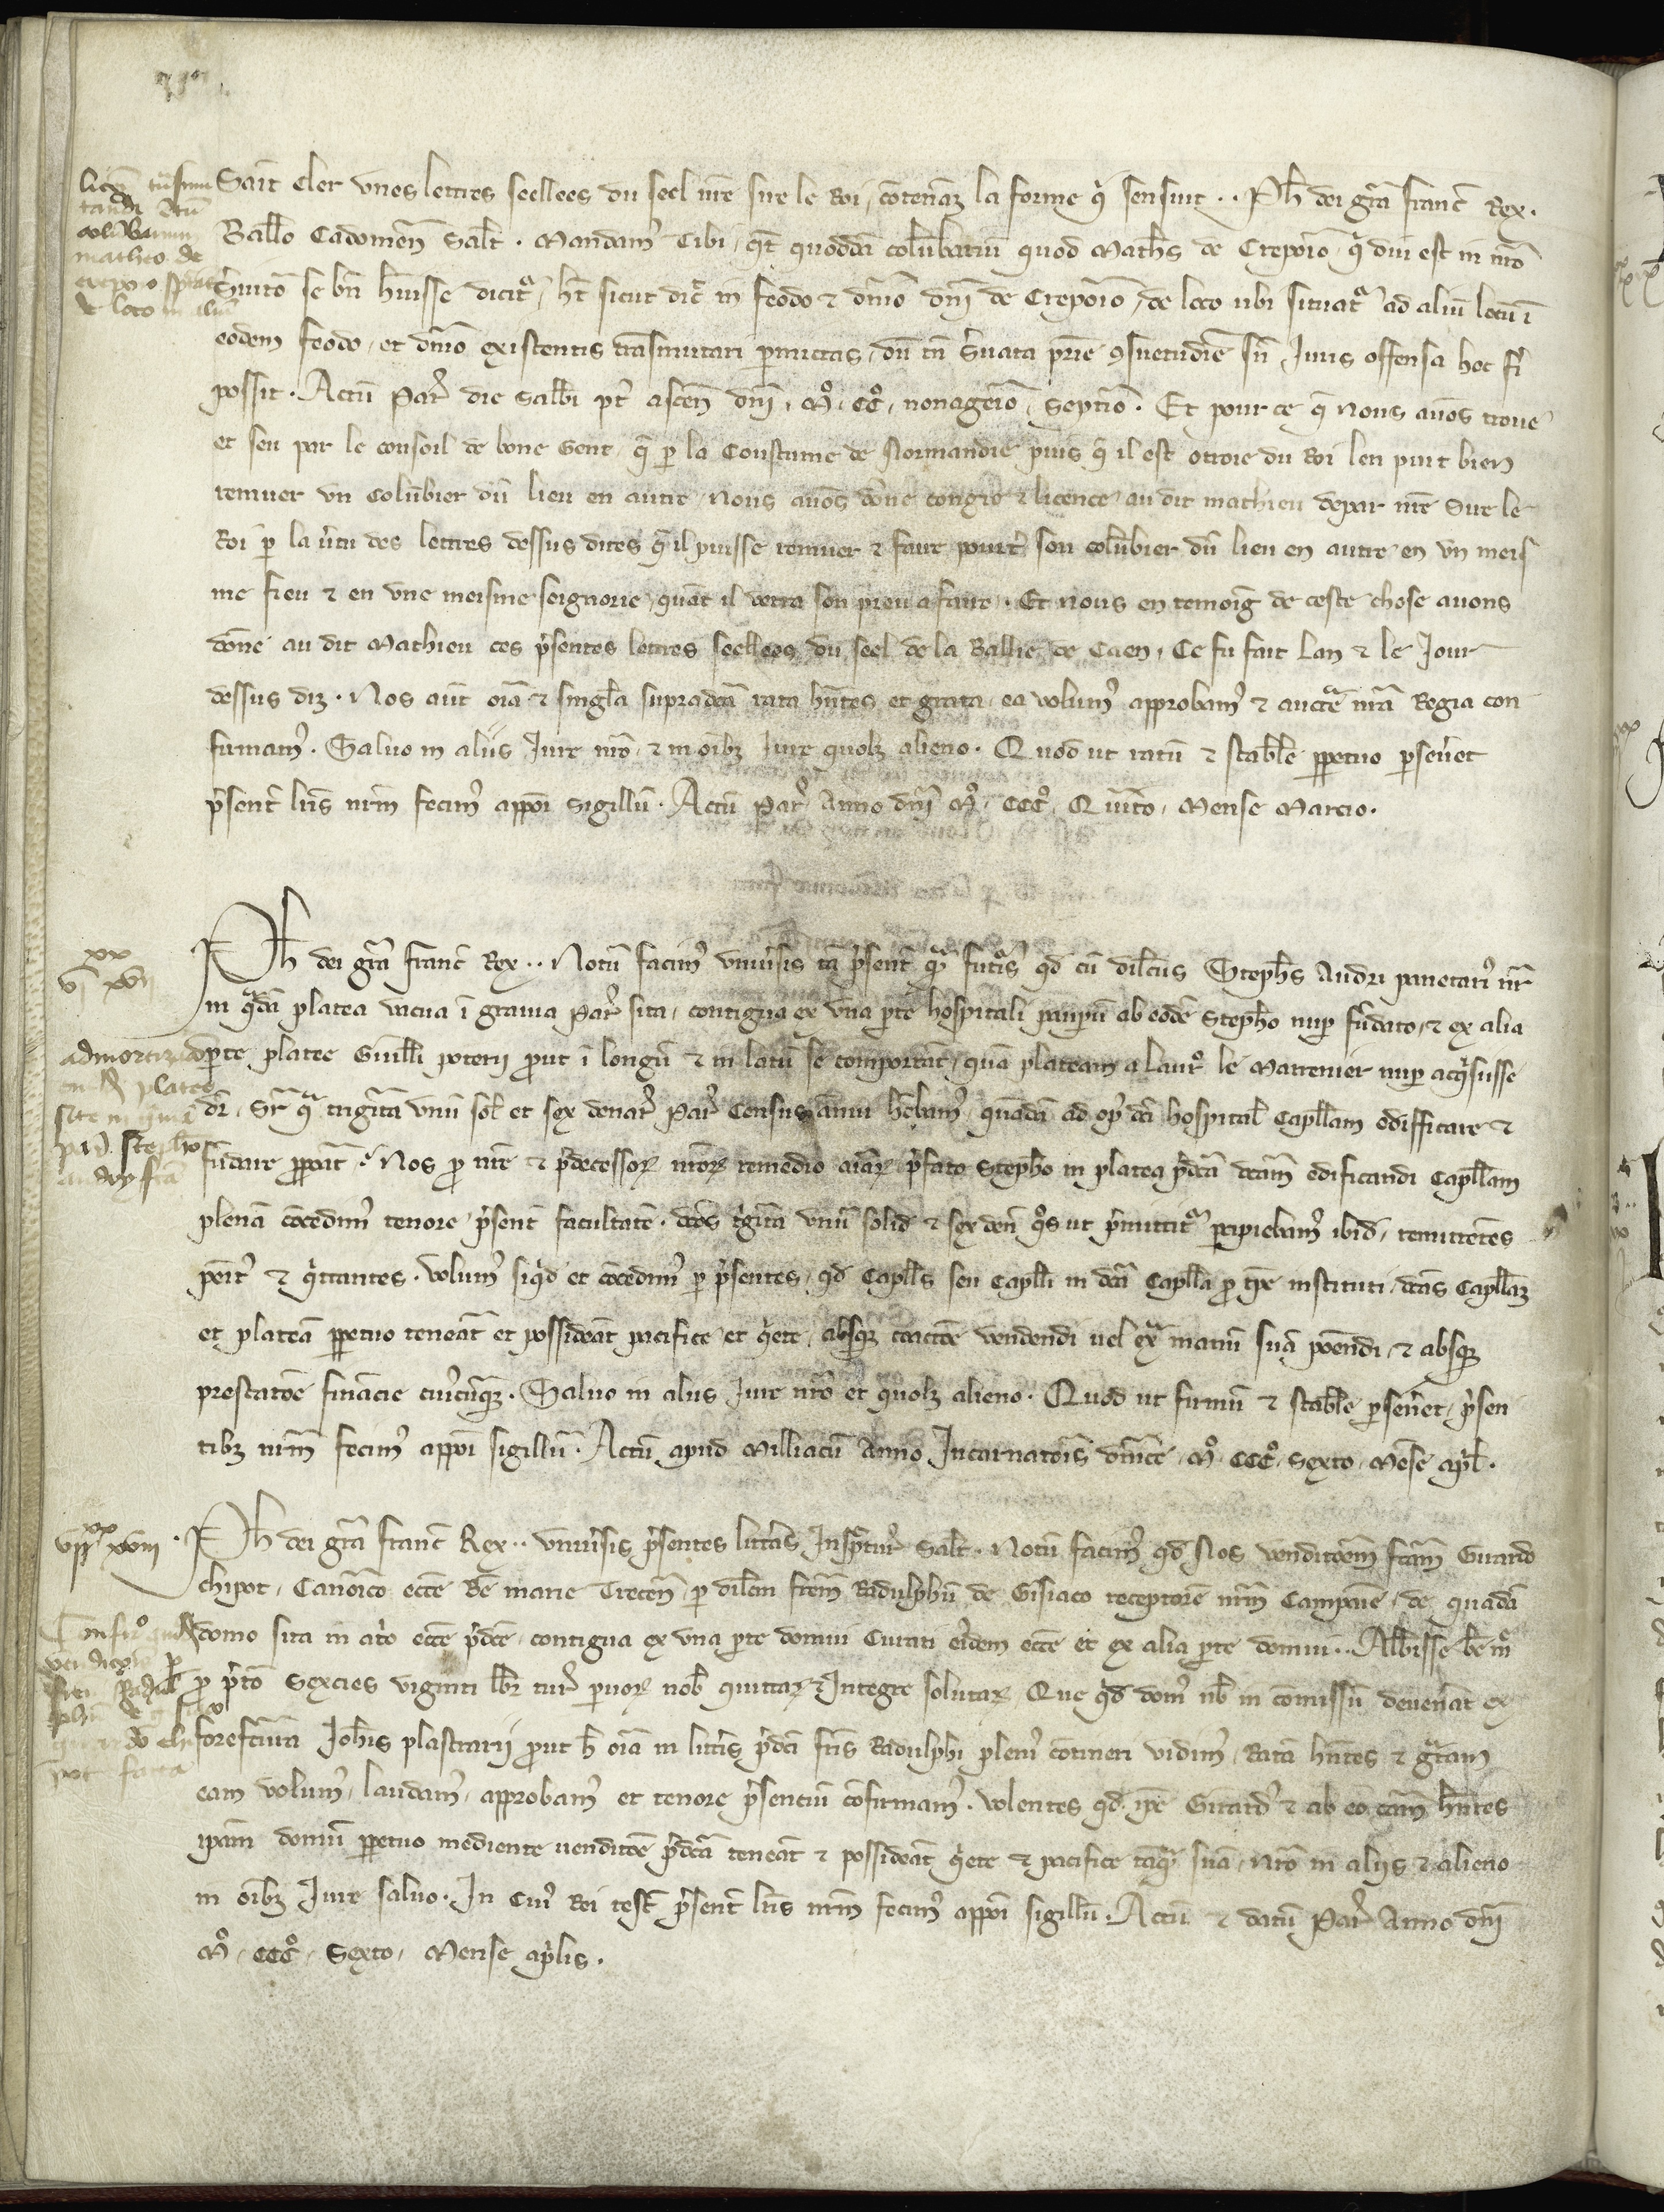 Saint Cler unes lettres seellees du seel nr̃e sire le Roi, cõtenãz la forme q̃ sensuit .. Ph̃ dei gr̃a franc̃ Rex.
Ball̃o Cadomeñ Sal̃t. Mandam⁹ Tibi, qt̃ quoddã colũbariũ quod Math̃s de Crepoĩo, q̃ diu est in nr̃o
s̃uitio se bñ h̃uisse dicit᷑, h̃t sicut dic̃ in feodo ⁊ dñio dñi de Crepoĩo, de loco ubi situat᷑ ad aliũ locũ ĩ
eodem feodo, et dñio existentis trãsmutari p̃mittas, dũ tñ s̃uata pr̃ie ꝯsuetudĩe sñ Iuris offensa hoc fĩ
possit. Actũ Par̃ die Sabb̃i pt̃ asceñ dñi, M̊. CC̊. nonagẽio, Septĩo. Et pour ce q̃ nous auõs troue
et seu par le consoil de bone Gent, q̃ p̃ la Coustume de Normandie puis q̃ il est otroie du Roi len puit bien
remuer un Colũbier dũ lieu en autre, Nous auõs dõne congie ⁊ licence au dit mathieu depar nr̃e Sire le
Roi p̃ la ũtu des lettres dessus dites q̃ il puisse remuer ⁊ faire son colũbier dũ lieu en autre en un meis
me fieu ⁊ en une meisme seignorie, quãt il verra son preu a faire. Et nous en temoig̃ de ceste chose auons
dõne au dit Mathieu ces p̃sentes lettres seellees du seel de la Ballie de Caen, Ce fu fait Lan ⁊ le Iour
dessus diz. Nos aũt oĩa ⁊ singl̃a supradc̃a rata hñtes et grata, ea volum⁹ approbam⁹ ⁊ auctẽ nr̃a Regia con
firmam⁹. Saluo in aliis Iure nr̃o, ⁊ in oĩbꝫ Iure quolꝫ alieno. Quod ut ratũ ⁊ stabl̃e ꝑpetuo ꝑseũet
p̃senť lr̃is nr̃m fecim⁹ appõi sigillũ. Actũ Par̃ Anno dñi M̊. CCC̊. Quĩto, Mense Marcio.
Ph̃ dei gr̃a franc̃ Rex .. Notũ facim⁹ uniũsis tã p̃senť q̃ futũs qd̃ cũ dil̃cus Steph̃s Audri panetari⁹ nr̃
in q̃dã platea vacua ĩ grauia Par̃ sita, contigua ex una p̃te hospitali paup̃um ab eodẽ Steph̃o nup̃ fũdato, ⁊ ex alia
p̃te platee Guill̃i poterij prout ĩ longũ ⁊ in latũ se comportãt, quã plateam a Laur̃ le Marrenier nup̃ acq̃sisse
dr̃, Sr̃ q̃ trigĩta unũ sol̃ et sex denar̃ Par̃ Census ãnui hẽbam⁹, quãdã ad op⁹ dc̃i hospital̃ Capell̃am edifficare ⁊
fũdare ꝓpoĩt. Nos pro nr̃e ⁊ p̃decessoꝝ nr̃oꝝ remedio aĩaꝝ p̃fato Steph̃o in platea p̃dc̃a dc̃am edificandi Capell̃am
plenã cõcedim⁹ tenore p̃senť facultatẽ. dc̃os tr̃gĩta unũ solid̃ ⁊ sex deñ q̃s ut p̃mittit᷑ p̃cipiebam⁹ ibid̃, remittẽtes
peñit⁹ ⁊ q̃ttantes. volum⁹ siq̃d̃ et cõcedim⁹ p̃ p̃sentes, qd̃ Capell̃s seu Capell̃i in dc̃a Capell̃a pro tp̃e instituti, dc̃as Capell̃az
et plateã ꝑpetuo teneãt et possideãt pacifice et q̃ete, absqꝫ coactõe vendendi uel ext̃ manũ suã põendi, ⁊ absqꝫ
prestatõe finãcie cuiũcũqꝫ. Saluo in aliis Iure nr̃o et quolꝫ alieno. Quod ut firmũ ⁊ stabl̃e ꝑseũet, p̃sen
tibꝫ nr̃m fecim⁹ appõi sigillũ. Actũ apud Milliacũ Anno Incarnatõis dñice, M̊. CCC̊. Sexto, Mẽse apl̃.
Ph̃ dei gr̃a franc̃ Rex .. uniũsis p̃sentes litt̃as Insp̃cturis Sal̃t. Notũ facim⁹ qd̃ Nos venditõem fc̃am Girardo
chipot, Canõico ecc̃e Bẽ marie Trecen̄, p̃ dil̃cm fr̃em Radulphũ de Gisiaco receptorẽ nr̃m Campañe, de quadã
domo sita in at̃o ecc̃e p̃dc̃e, contigua ex una p̃te domui Curati eiũdem ecc̃e et ex alia p̃te domui ..
pro p̃tio Sexcies viginti libr̃ tur̃ p̃uoꝝ nob̃ quittaꝝ ⁊ Integre solutaꝝ, Que q̃d̃ dom⁹ nob̃ in cõmissũ deueñat ex
forefc̃ura Ioh̃is plastrarij prout h̃ oĩa in litt̃is p̃dc̃i fr̃is Radulphi plen⁹ cõtineri vidim⁹, Ratã hñtes ⁊ gr̃atam
eam volum⁹, laudam⁹, approbam⁹ et tenore p̃sentiũ cõfirmam⁹. volentes qd̃ ip̃e Girard⁹ ⁊ ab eo cãm hñtes
ip̃am domũ ꝑpetuo mediante uenditõe p̃dc̃a teneãt ⁊ possideãt q̃ete ⁊ pacifice tãq̃ suã, Nr̃o in aliis ⁊ alieno
in oĩbꝫ Iure saluo. In Cui⁹ Rei test̃ p̃senť lr̃is nr̃m fecim⁹ appõi sigillũ. Actũ ⁊ datũ Par̃ Anno dñi
M̊. CCC̊. Sexto, Mense aprilis.